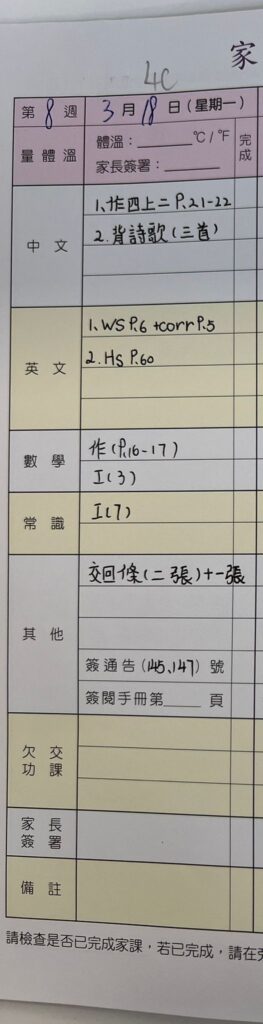 家
4C
第 8 週 3 月 18 日 (星期一)
量體溫 體溫：______ °C / °F 完成
家長簽署：______
中文 1. 作四上二 P.21-22
2. 背詩歌 (三首)
英文 1. WS P.6 + corr P.5
2. HS P.60
數學 作 (P.16-17)
I (3)
常識 I (7)
其他 交回條 (二張) + 一張
簽通告 (145、147) 號
簽閱手冊第____頁
欠交功課
家長簽署
備註
請檢查是否已完成家課，若已完成，請在